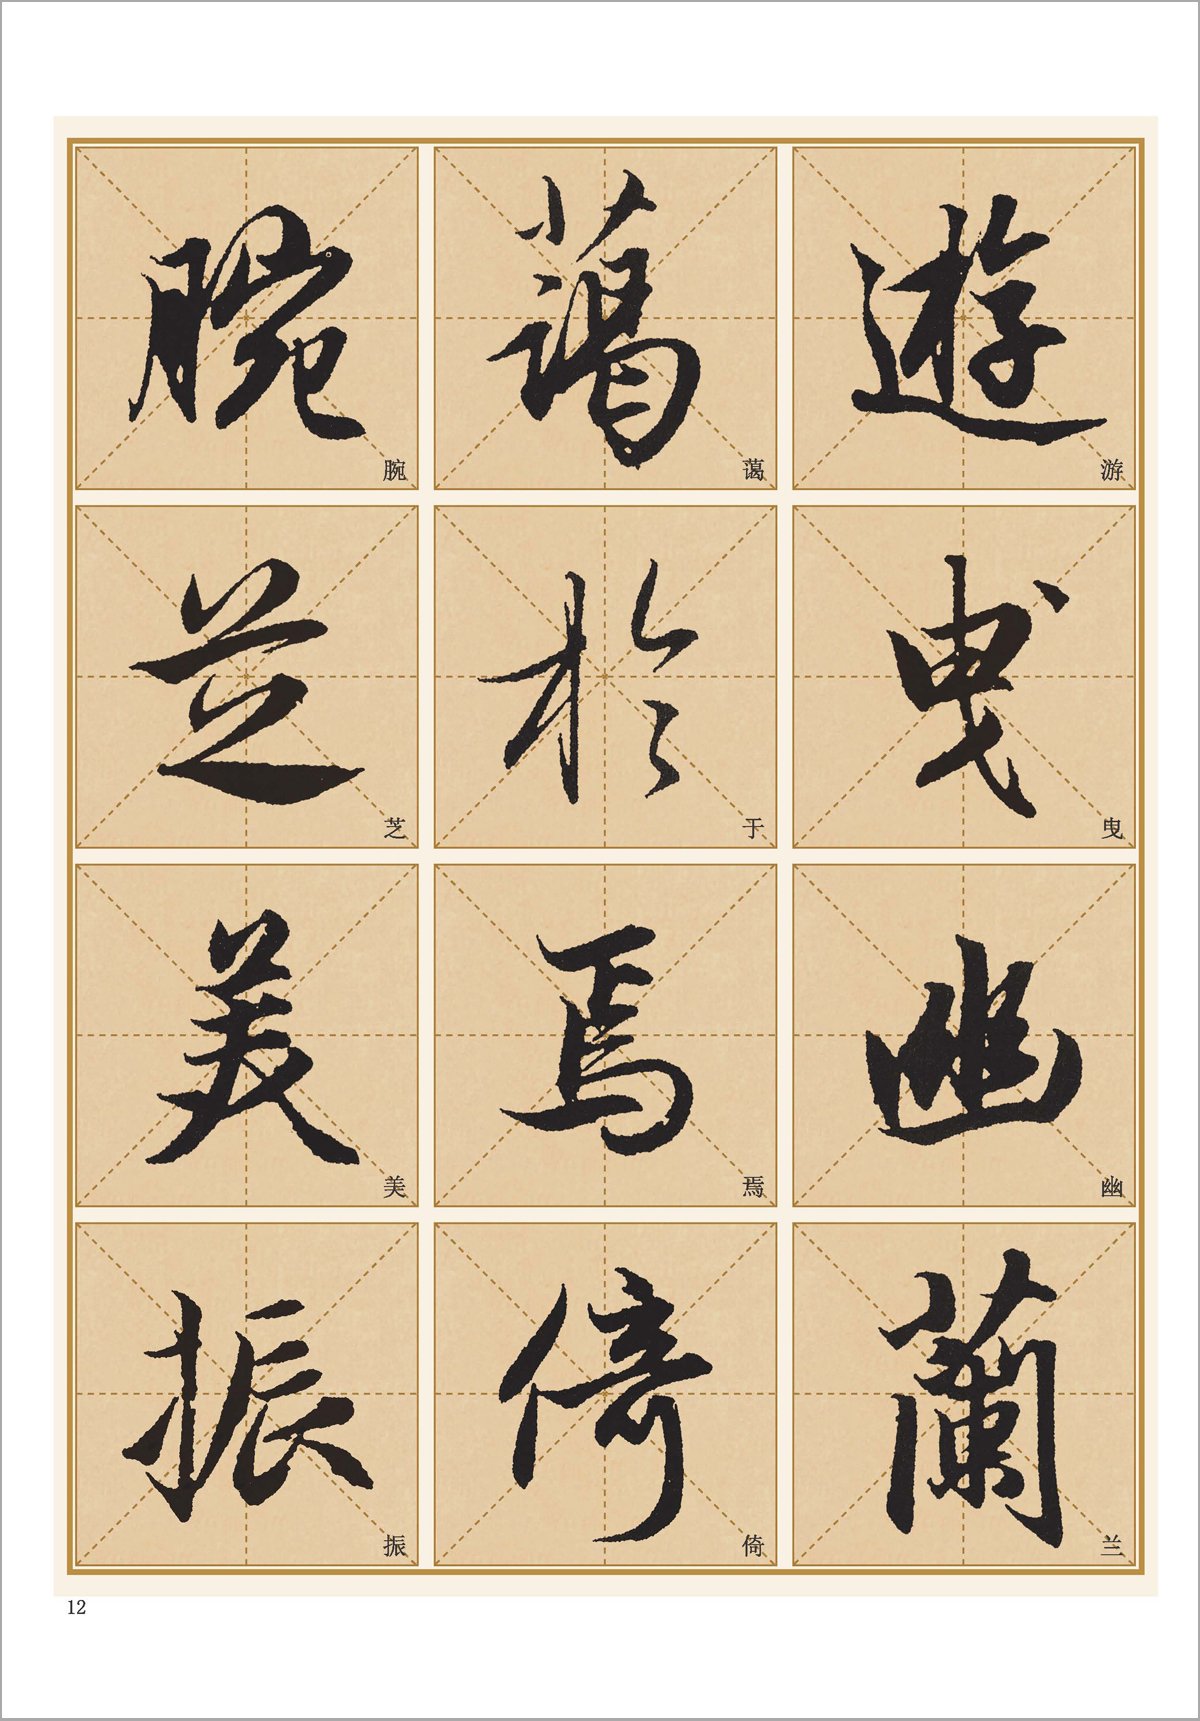 遊
游
曳
曳
幽
幽
蘭
兰
藹
蔼
於
于
焉
焉
倚
倚
腕
腕
芝
芝
美
美
振
振
12